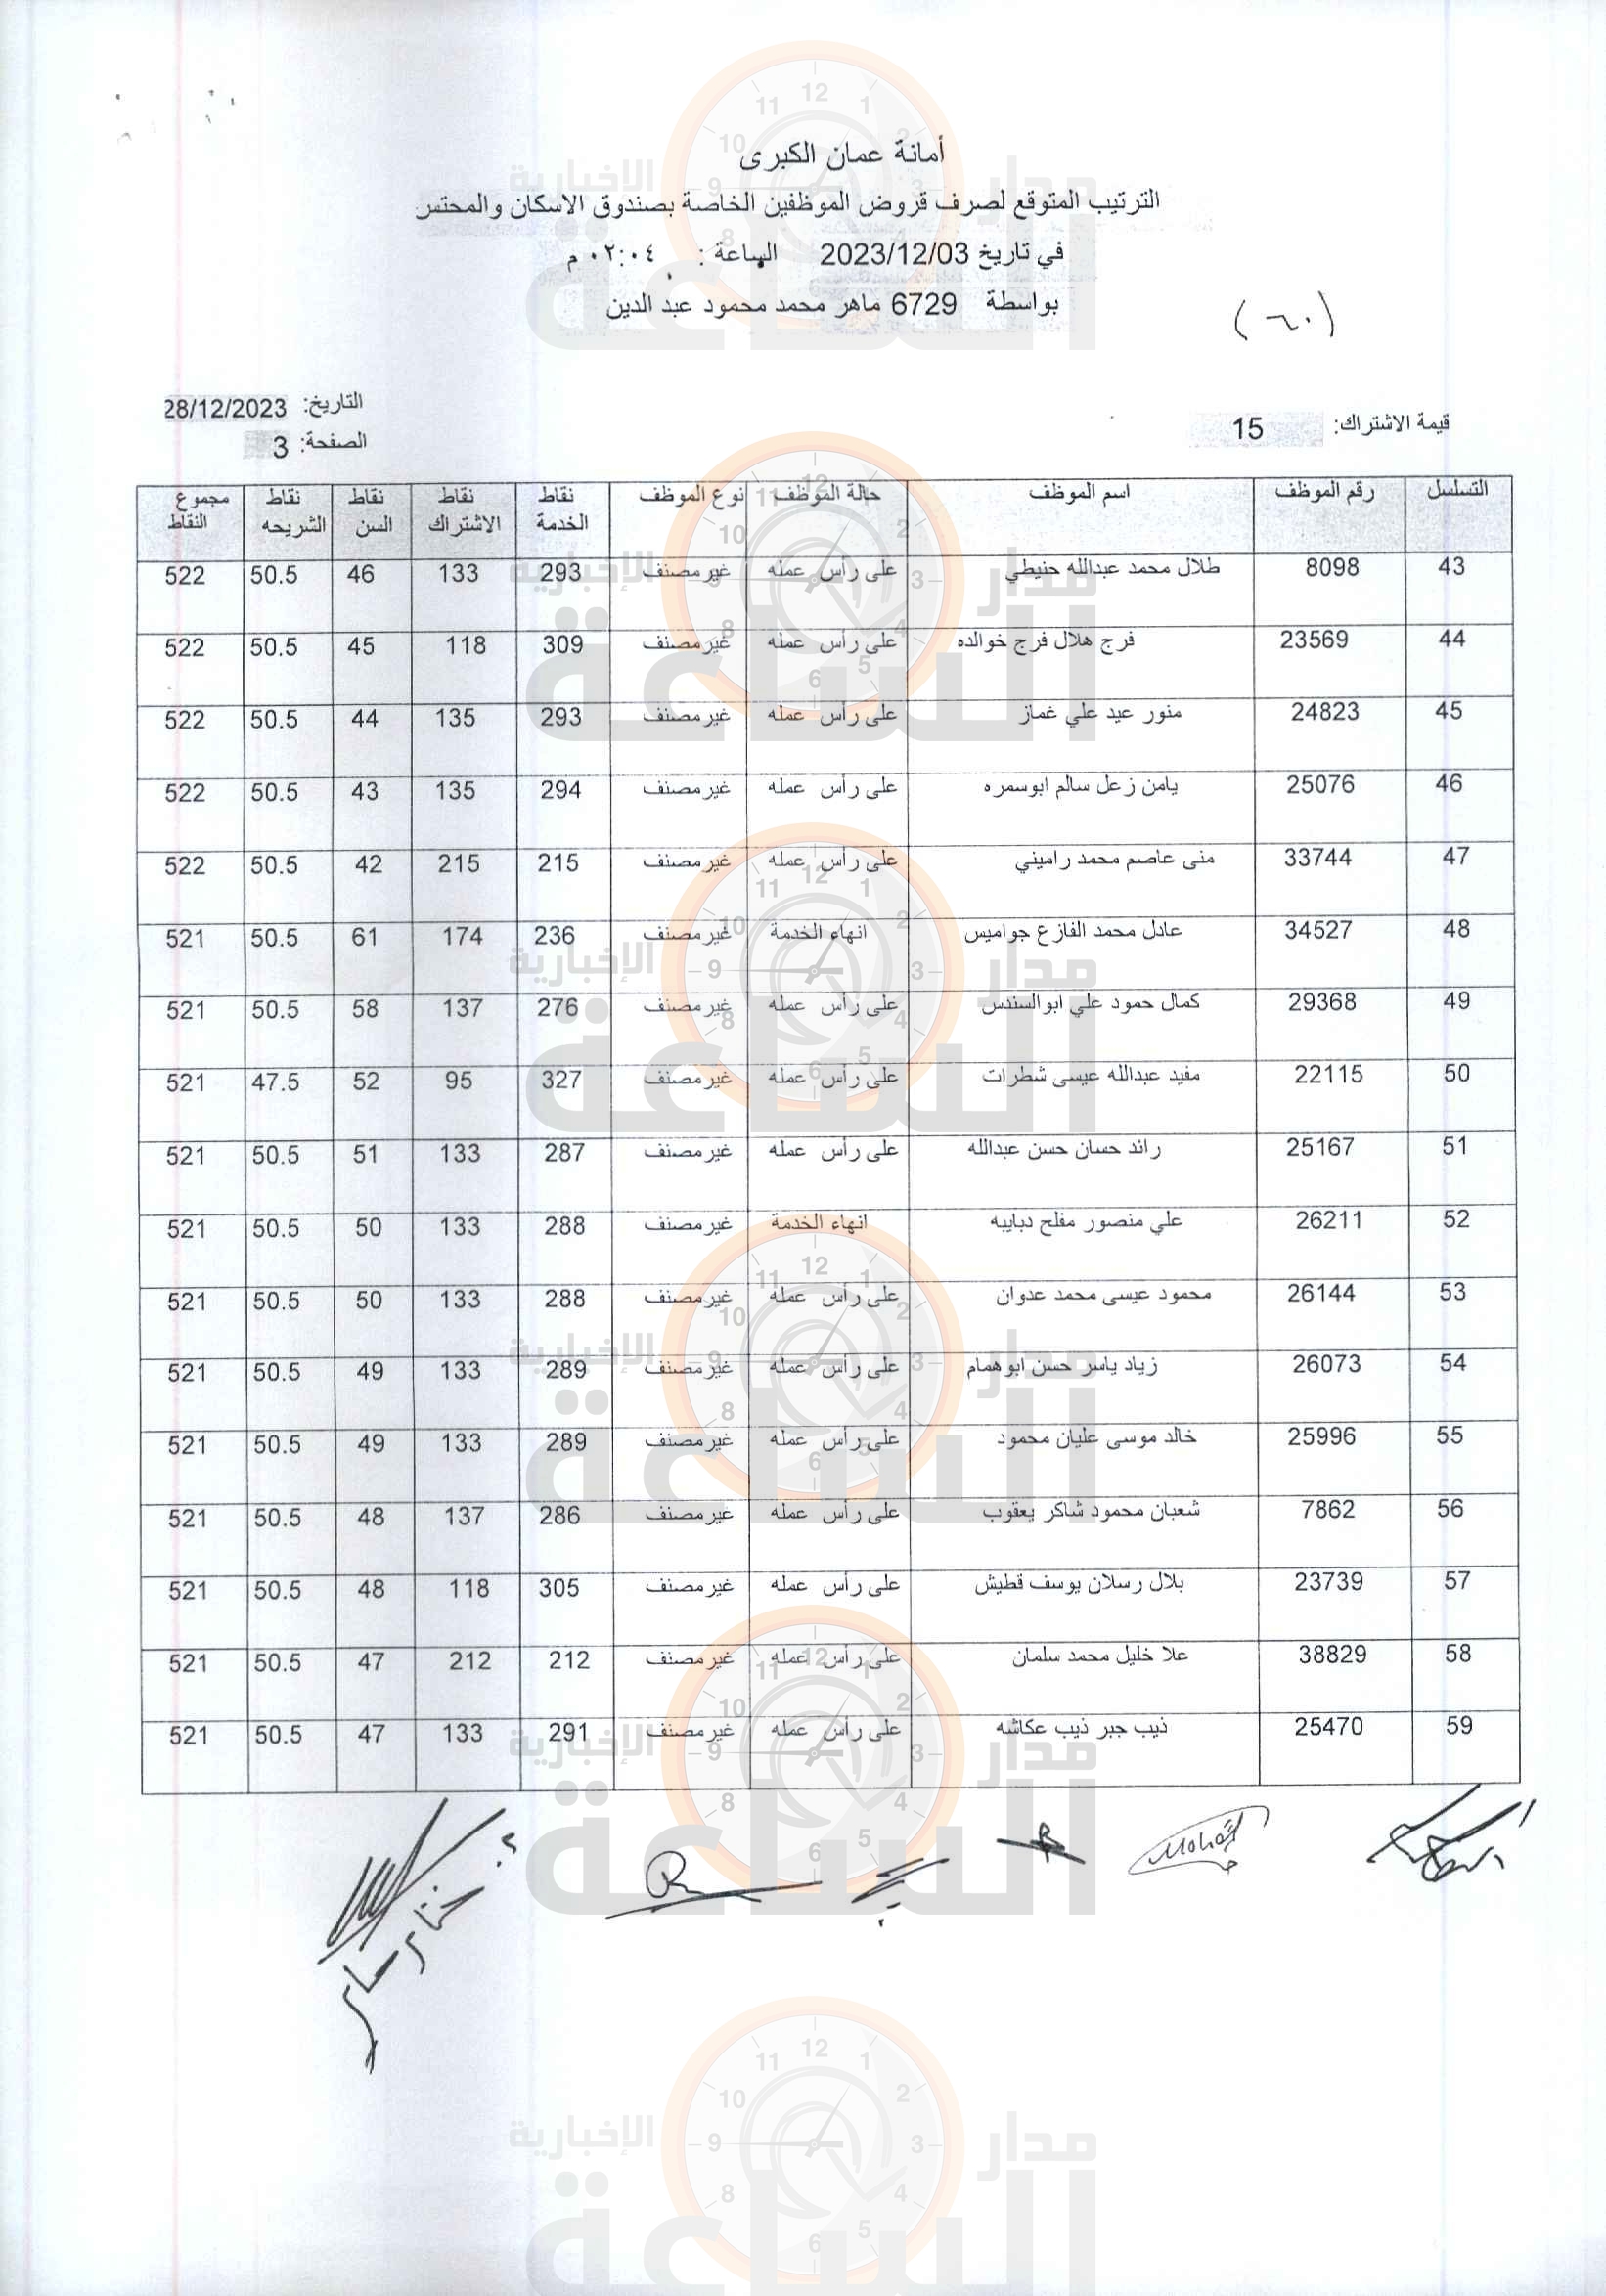 أمانة عمان الكبرى
الترتيب المتوقع لصرف قروض الموظفين الخاصة بصندوق الاسكان والمحتس
في تاريخ 2023/12/03 الساعة : ٠٢:٠٤ م
بواسطة 6729 ماهر محمد محمود عبد الدين
(٦٠)
قيمة الاشتراك: 15
التاريخ: 28/12/2023
الصفحة: 3
التسلسل رقم الموظف اسم الموظف حالة الموظف نوع الموظف نقاط الخدمة نقاط الاشتراك نقاط السن نقاط الشريحه مجموع النقاط
43 8098 طلال محمد عبدالله حنيطي على رأس عمله غير مصنف 293 133 46 50.5 522
44 23569 فرج هلال فرج خوالده على رأس عمله غير مصنف 309 118 45 50.5 522
45 24823 منور عيد علي غماز على رأس عمله غير مصنف 293 135 44 50.5 522
46 25076 يامن زعل سالم ابوسمره على رأس عمله غير مصنف 294 135 43 50.5 522
47 33744 منى عاصم محمد راميني على رأس عمله غير مصنف 215 215 42 50.5 522
48 34527 عادل محمد الفازع جواميس انهاء الخدمة غير مصنف 236 174 61 50.5 521
49 29368 كمال حمود علي ابوالسندس على رأس عمله غير مصنف 276 137 58 50.5 521
50 22115 مفيد عبدالله عيسى شطرات على رأس عمله غير مصنف 327 95 52 47.5 521
51 25167 رائد حسان حسن عبدالله على رأس عمله غير مصنف 287 133 51 50.5 521
52 26211 علي منصور مفلح دبايبه انهاء الخدمة غير مصنف 288 133 50 50.5 521
53 26144 محمود عيسى محمد عدوان على رأس عمله غير مصنف 288 133 50 50.5 521
54 26073 زياد ياسر حسن ابوهمام على رأس عمله غير مصنف 289 133 49 50.5 521
55 25996 خالد موسى عليان محمود على رأس عمله غير مصنف 289 133 49 50.5 521
56 7862 شعبان محمود شاكر يعقوب على رأس عمله غير مصنف 286 137 48 50.5 521
57 23739 بلال رسلان يوسف قطيش على رأس عمله غير مصنف 305 118 48 50.5 521
58 38829 علا خليل محمد سلمان على رأس عمله غير مصنف 212 212 47 50.5 521
59 25470 ذيب جبر ذيب عكاشه على رأس عمله غير مصنف 291 133 47 50.5 521
مدار الساعة الإخبارية